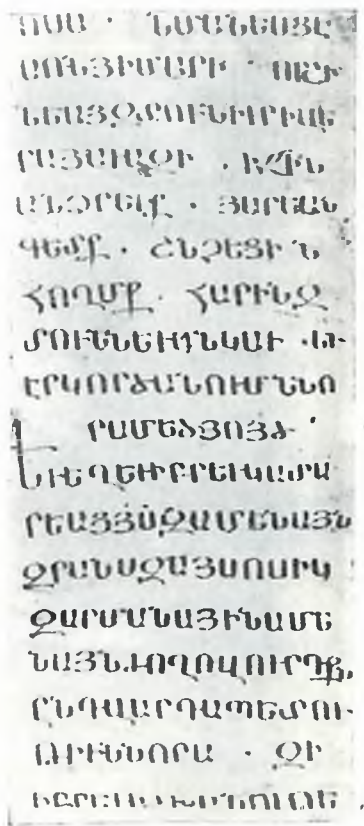 ՍՈՍԱ · ՆՄԱՆԵՍՑԷ
ԱՌՆՅԻՄԱՐԻ · ՈՐՇԻ
ՆԵԱՑԶՏՈՒՆԻՒՐԻՎԵ
ՐԱՅԱՒԱԶԻ · ԻՋԻՆ
ԱՆՁՐԵՒՔ · ՅԱՐԵԱՆ
ԳԵՏՔ · ՇՆՉԵՑԻՆ
ՀՈՂՄՔ · ՀԱՐԻՆԶ
ՏՈՒՆՆԵՒԱՆԿԱՒ · ԵՒ
ԷՐԿՈՐԾԱՆՈՒՄՆՆՈ
ՐԱՄԵԾՅՈՅԺ ·
ԵՒԵՂԵՒԻԲՐԵՒԿԱՏԱ
ՐԵԱՑՅՍԶԱՄԵՆԱՅՆ
ԶԲԱՆՍԶԱՅՍՈՍԻԿ
ԶԱՐՄԱՆԱՅԻՆԱՄԵ
ՆԱՅՆԺՈՂՈՎՈՒՐԴՔ
ԸՆԴՎԱՐԴԱՊԵՏՈՒ
ԹԻՒՆՆՈՐԱ · ԶԻ
ԻԲՐԵՒԻՇԽԱՆՈՒԹԵ